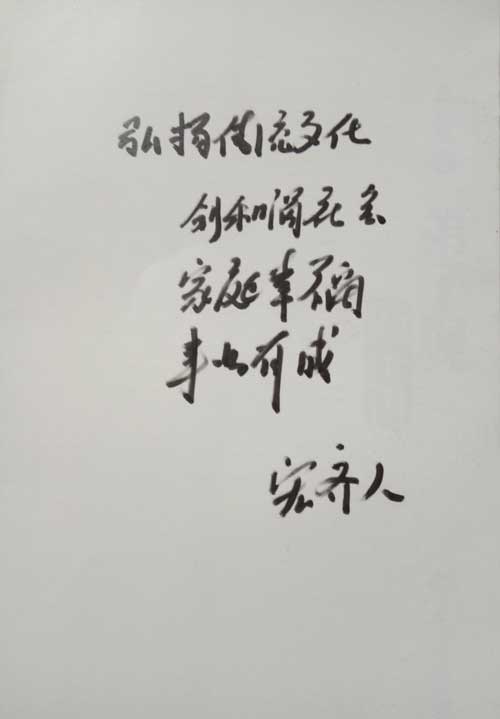 弘扬传统文化
创和谐社会
家庭幸福
事业有成
宏齐人